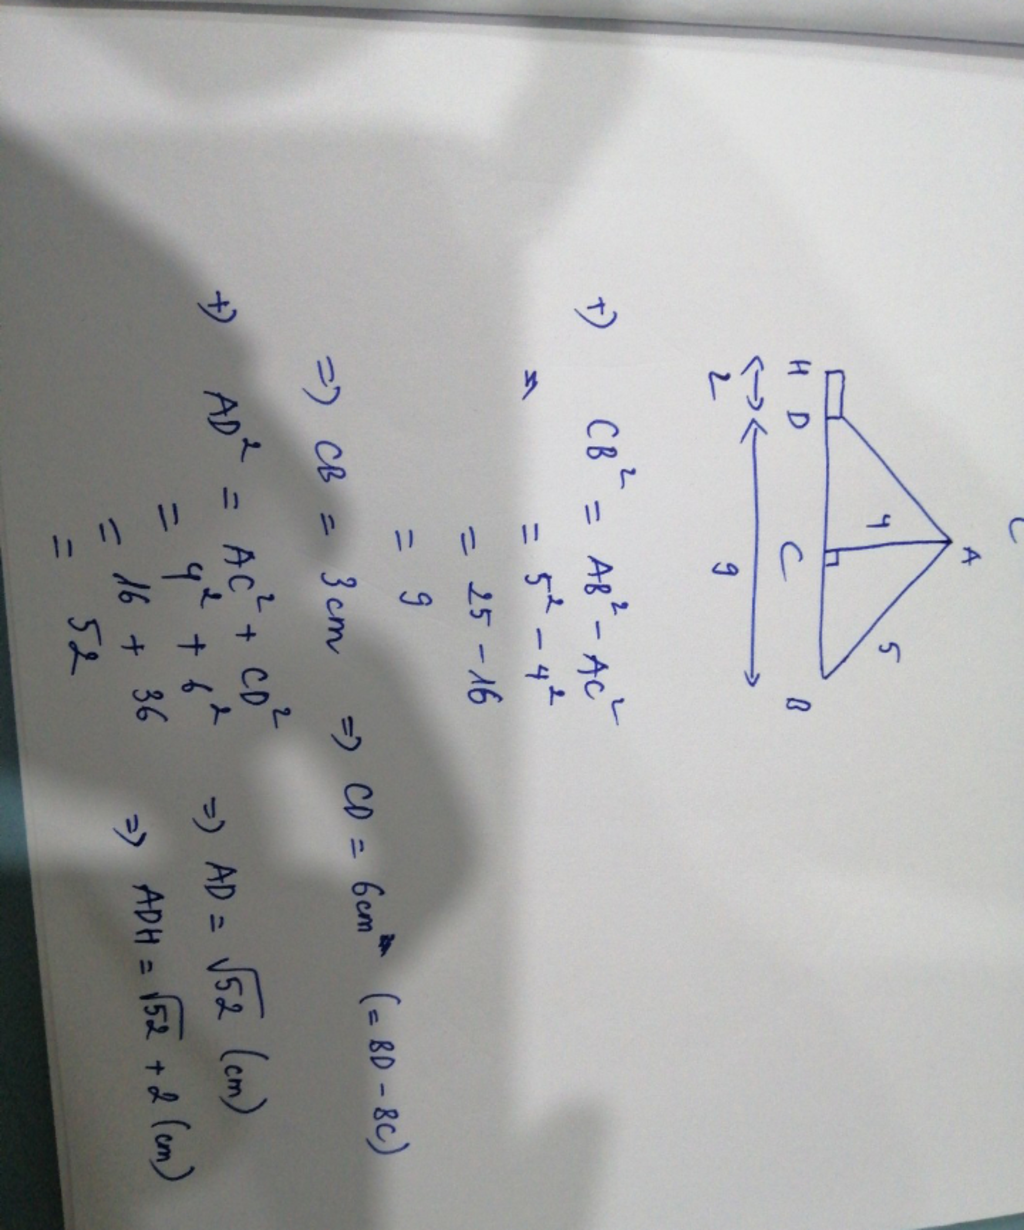 A
4
5
H D C B
2 9
+) CB² = AB² - AC²
= 5² - 4²
= 25 - 16
= 9
=) CB = 3 cm =) CD = 6 cm (= BD - BC)
+) AD² = AC² + CD²
= 4² + 6² =) AD = √52 (cm)
= 16 + 36 =) ADH = √52 + 2 (cm)
= 52